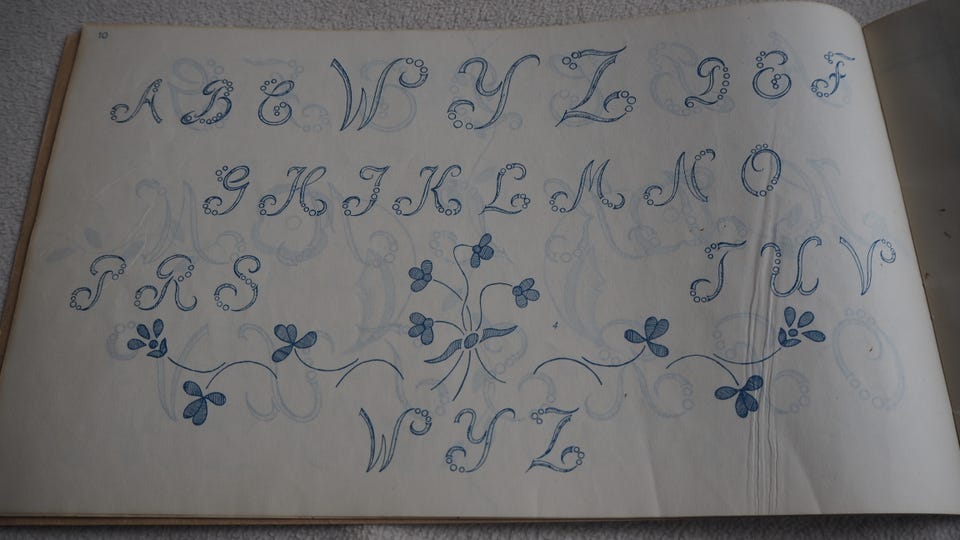 10
A B E W Y Z D E F
G H I K L M N O
P R S T U V
4
W Y Z